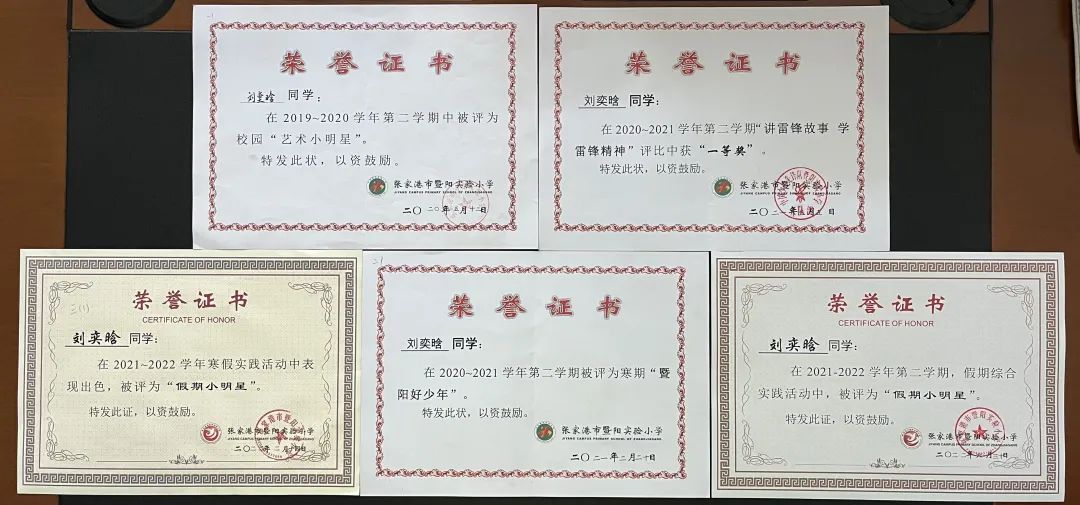 荣誉证书
刘奕晗 同学：
在 2019~2020 学年第二学期中被评为
校园“艺术小明星”。
特发此状，以资鼓励。
张家港市暨阳实验小学
JIYANG CAMPUS PRIMARY SCHOOL OF ZHANGJIAGANG
荣誉证书
刘奕晗 同学：
在 2020~2021 学年第二学期“讲雷锋故事 学
雷锋精神”评比中获“一等奖”。
特发此状，以资鼓励。
张家港市暨阳实验小学
JIYANG CAMPUS PRIMARY SCHOOL OF ZHANGJIAGANG
三(1)
荣誉证书
CERTIFICATE OF HONOR
刘奕晗 同学：
在 2021~2022 学年寒假实践活动中表
现出色，被评为“假期小明星”。
特发此证，以资鼓励。
张家港市暨阳实验小学
JIYANG CAMPUS PRIMARY SCHOOL OF ZHANGJIAGANG
二〇二二年二月十四日
荣誉证书
刘奕晗 同学：
在 2020~2021 学年第二学期被评为寒期“暨
阳好少年”。
特发此状，以资鼓励。
张家港市暨阳实验小学
JIYANG CAMPUS PRIMARY SCHOOL OF ZHANGJIAGANG
二〇二一年二月二十日
荣誉证书
CERTIFICATE OF HONOR
刘奕晗 同学：
在 2021-2022 学年第二学期，假期综合
实践活动中，被评为“假期小明星”。
特发此证，以资鼓励。
张家港市暨阳实验小学
JIYANG CAMPUS PRIMARY SCHOOL OF ZHANGJIAGANG